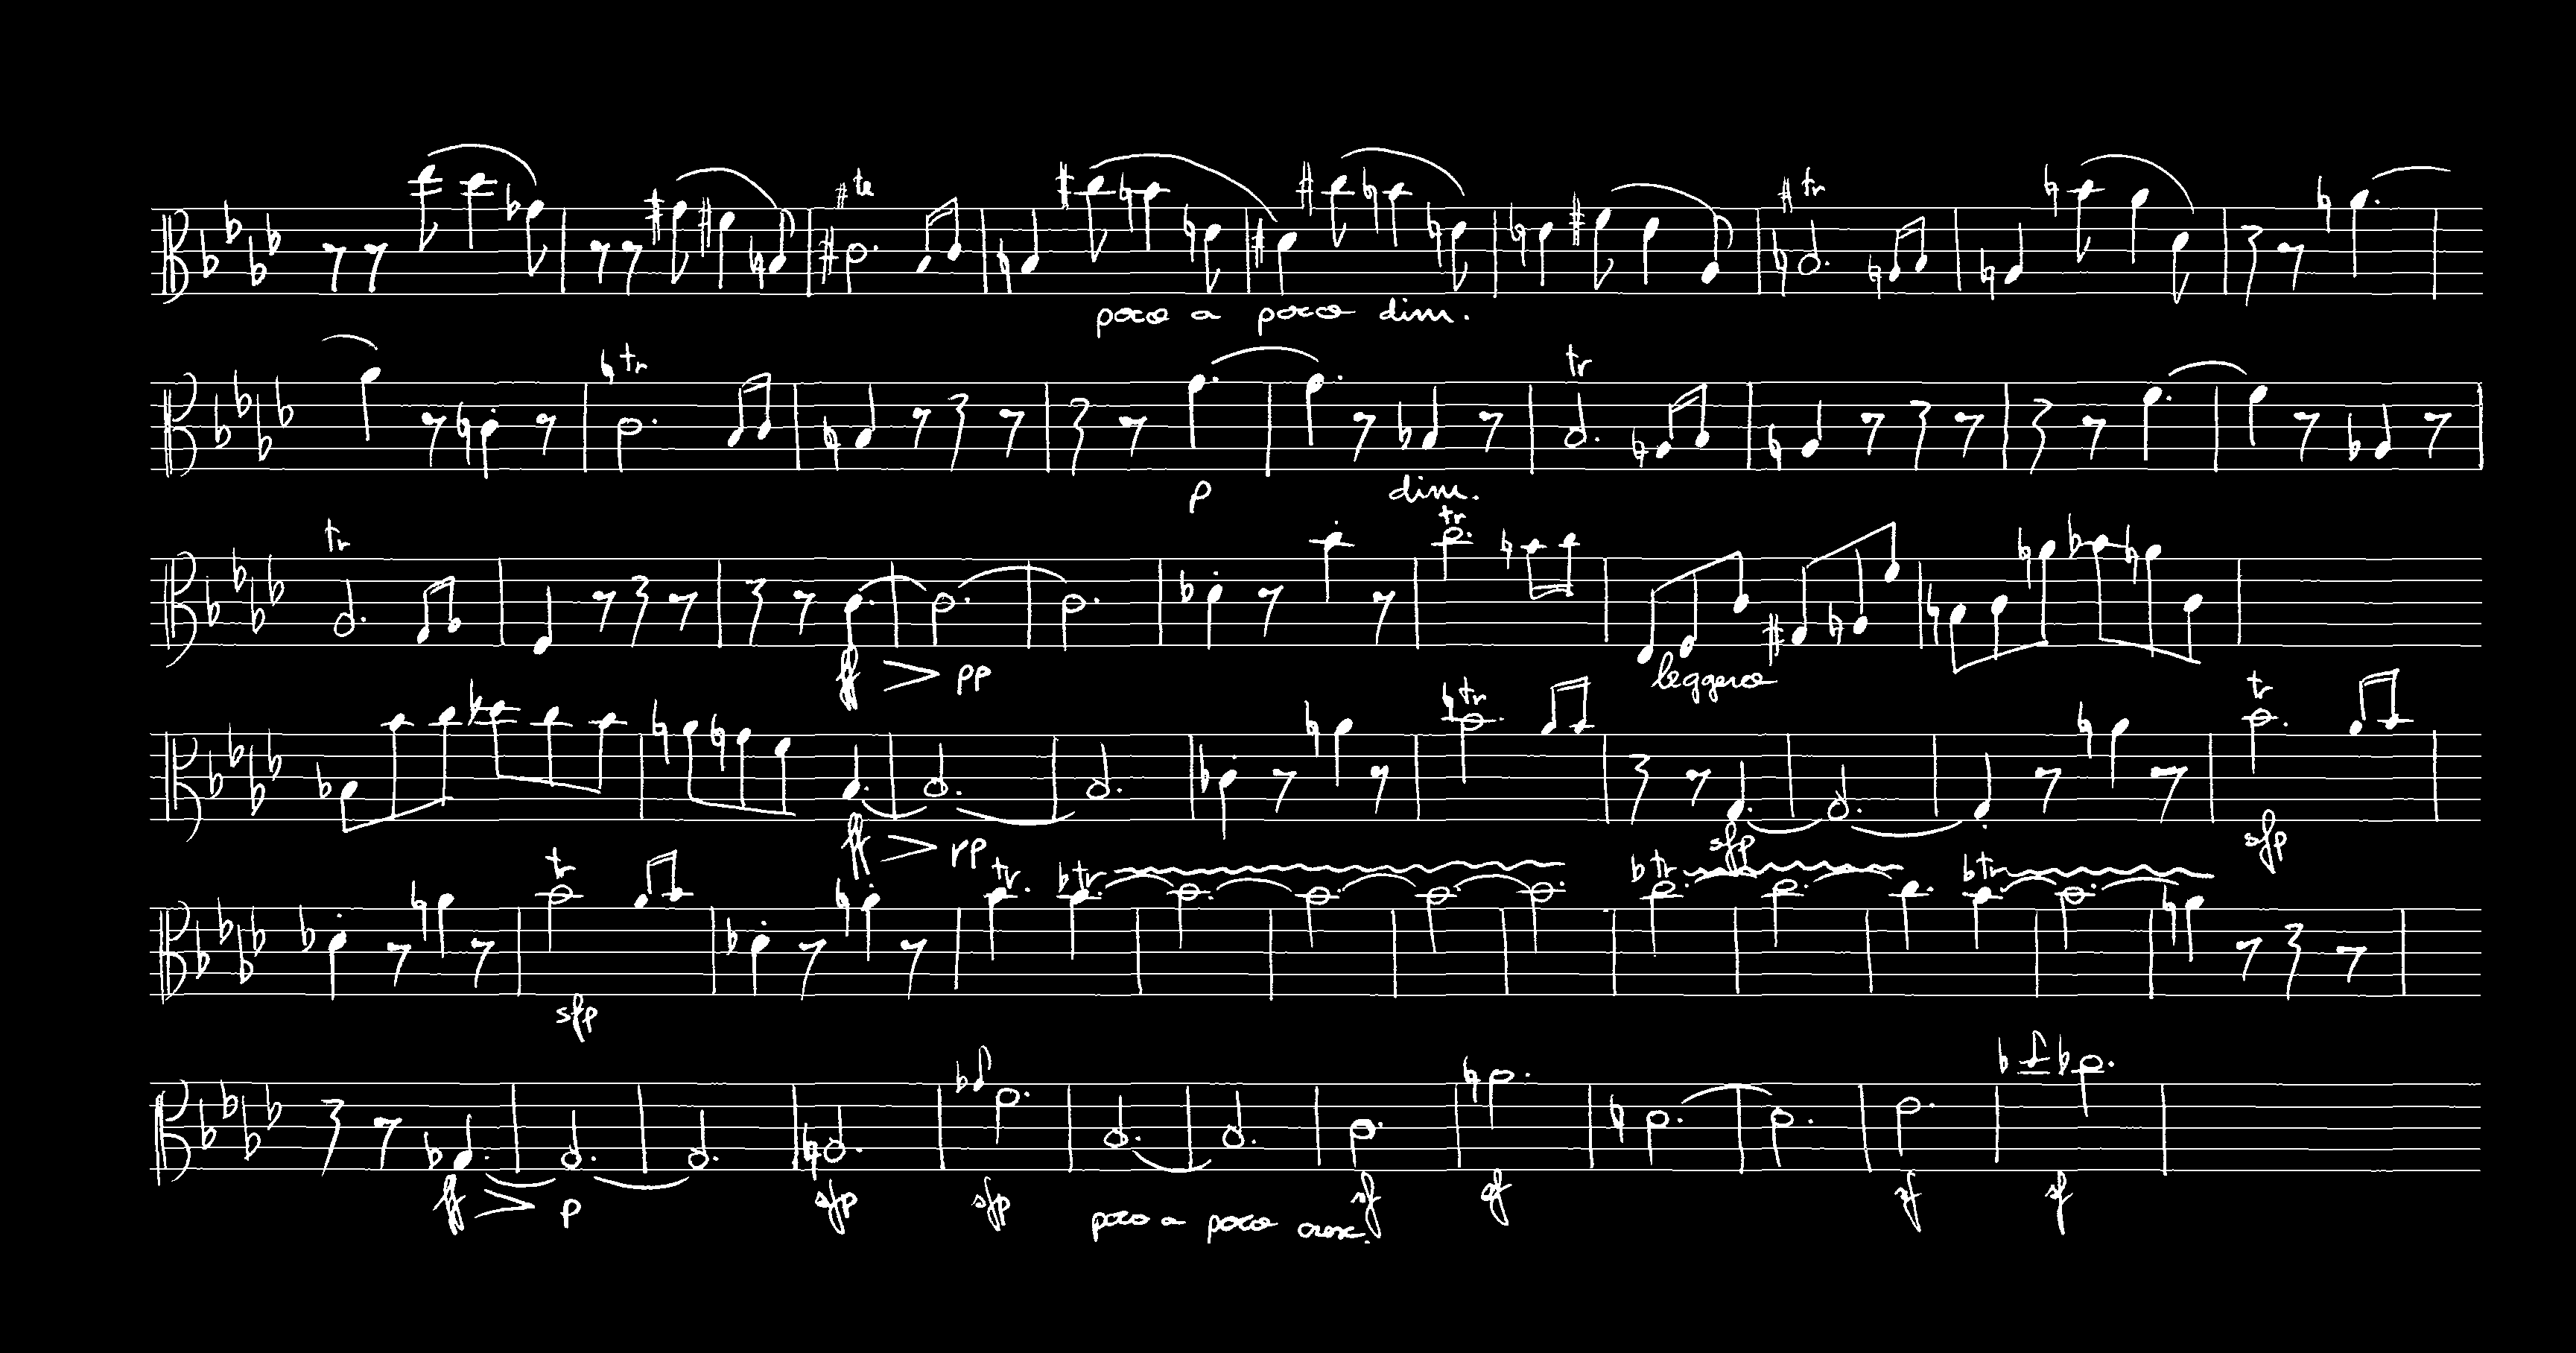 tr
poco a poco dim.
tr
tr
tr
p
dim.
tr
tr
ff > pp
leggero
tr
tr
ff > pp
sfp
sfp
tr
tr.
tr
tr
tr
sfp
ff > p
sfp
sfp
poco a poco cresc.
sf
sf
sf
sf